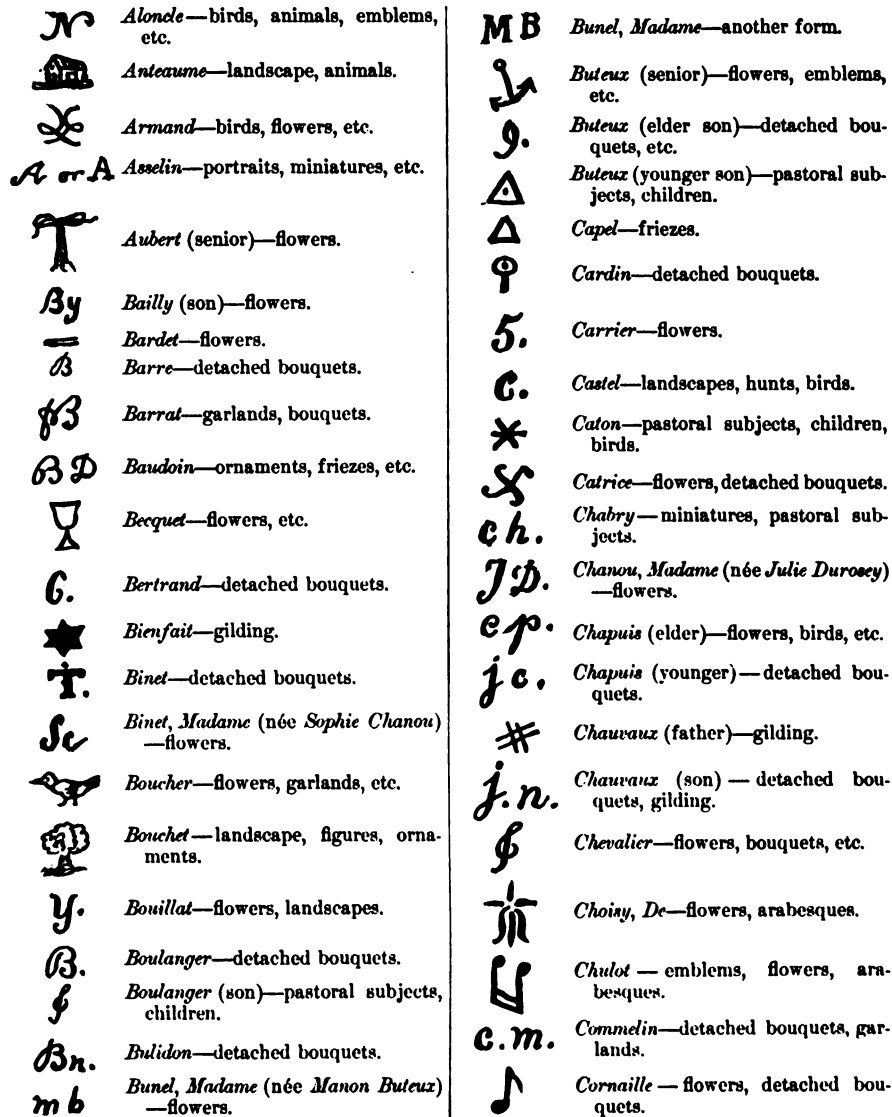 N Aloncle—birds, animals, emblems,
etc.
Anteaume—landscape, animals.
Armand—birds, flowers, etc.
A or A Asselin—portraits, miniatures, etc.
Aubert (senior)—flowers.
By Bailly (son)—flowers.
Bardet—flowers.
B Barre—detached bouquets.
Barrat—garlands, bouquets.
BD Baudoin—ornaments, friezes, etc.
Becquet—flowers, etc.
6. Bertrand—detached bouquets.
Bienfait—gilding.
T. Binet—detached bouquets.
Sc Binet, Madame (née Sophie Chanou)
—flowers.
Boucher—flowers, garlands, etc.
Bouchet—landscape, figures, orna-
ments.
Y. Bouillat—flowers, landscapes.
B. Boulanger—detached bouquets.
Boulanger (son)—pastoral subjects,
children.
Bn. Bulidon—detached bouquets.
m b Bunel, Madame (née Manon Buteux)
—flowers.
M B Bunel, Madame—another form.
Buteux (senior)—flowers, emblems,
etc.
9. Buteux (elder son)—detached bou-
quets, etc.
Buteux (younger son)—pastoral sub-
jects, children.
Capel—friezes.
Cardin—detached bouquets.
5. Carrier—flowers.
C. Castel—landscapes, hunts, birds.
Caton—pastoral subjects, children,
birds.
Catrice—flowers, detached bouquets.
ch. Chabry—miniatures, pastoral sub-
jects.
JD. Chanou, Madame (née Julie Durosey)
—flowers.
cp. Chapuis (elder)—flowers, birds, etc.
jc. Chapuis (younger)—detached bou-
quets.
Chauvaux (father)—gilding.
j.n. Chauvaux (son)—detached bou-
quets, gilding.
Chevalier—flowers, bouquets, etc.
Choisy, De—flowers, arabesques.
Chulot—emblems, flowers, ara-
besques.
c.m. Commelin—detached bouquets, gar-
lands.
Cornaille—flowers, detached bou-
quets.